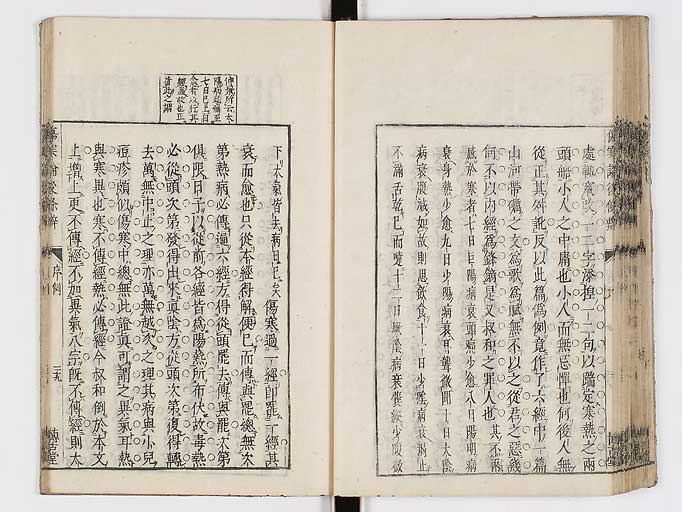 處輒竄改一二字添揑一二句以鑑定寒熱之兩
頭船小人之中庸也小人而無忌憚也何後人無
從正其舛訛反以此篇為例竟作了六經中一篇
山河帶礪之文為歌為賦無不以之從君之惡幾
何不以內經為鋒鏑是又叔和之罪人也其不兩
感於寒者七日巨陽病衰頭痛少愈八日陽明病
衰身熱少愈九日少陽病衰耳聾微聞十日太陰
病衰腹減如故則思飲食十一日少陰病衰渴止
不滿舌乾已而嚏十二日厥陰病衰囊縱少腹微
仲景所云太
陽病頭痛至
七日已上自
愈者以行其
經盡故也正
此之謂
下大氣皆去病日已矣傷寒過一經即罷一經其
衰而愈也只從本經得解便已而傳與罷總無次
第熱病必傳遍六經方得從頭罷去傳與罷次第
俱限日子以從前各經皆為陽熱所布伏故毒熱
必從頭次第發得出來真陰方從頭次第復得轉
去萬無中止之理亦萬無越次之理其病與小兒
痘疹頗似傷寒中總無此證真可謂之異氣耳熱
與寒異也寒不傳經熱必傳經今叔和倒於本文
上增上更不傳經不加異氣八字旣不傳經則太
序例